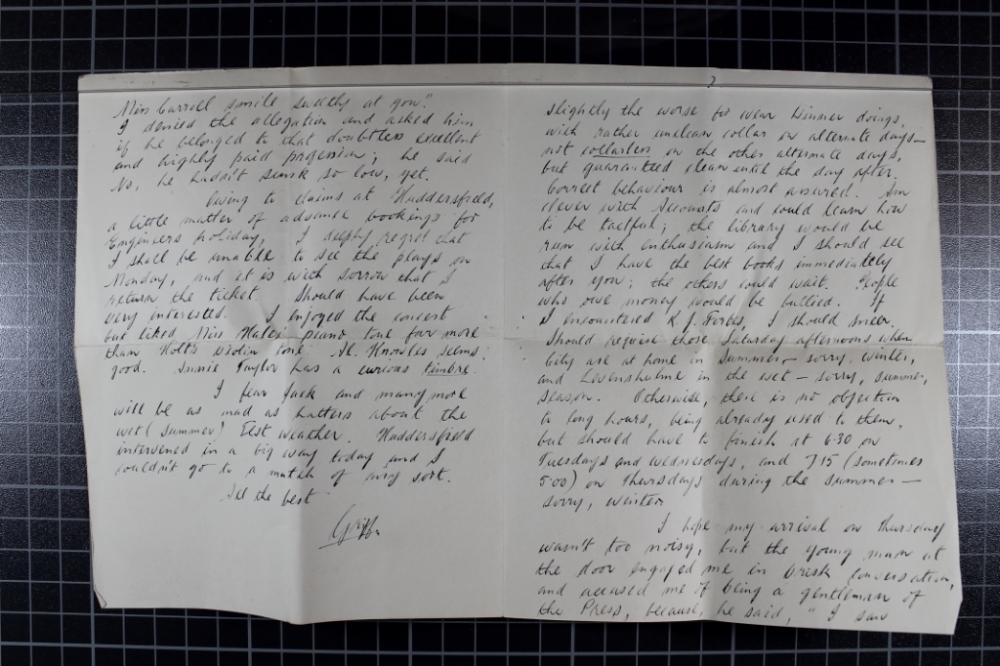 Miss Carroll smile sweetly at you."
I denied the allegation and asked him
if he belonged to that doubtless excellent
and highly paid profession; he said
No, he hadn't sunk so low, yet.
Owing to claims at Huddersfield,
a little matter of advance bookings for
Engineers holiday, I deeply regret that
I shall be unable to see the plays on
Monday, and it is with sorrow that I
return the ticket. Should have been
very interested. I enjoyed the concert
but liked Miss piano tone far more
than Holt's violin tone. Knowles seems
good. Taylor has a curious timbre.
I fear Jack and many more
will be as mad as hatters about the
wet (summer) Test weather. Huddersfield
intervened in a big way today and I
couldn't go to a match of any sort.
All the best
2
slightly the worse for wear Winner doings,
with rather unclean collar on alternate days—
not collarless on the other alternate days,
but guaranteed clean until the day after.
Correct behaviour is almost assured. Am
clever with Accounts and could learn how
to be tactful; the library would be
run with enthusiasm and I should see
that I have the best books immediately
after you; the others could wait. People
who owe money would be bullied. If
I encountered R.J. Forbes, I should sneer.
Should require those Saturday afternoons when
City are at home in Summer — sorry, winter,
and Levenshulme in the wet — sorry, summer,
season. Otherwise, there is no objection
to long hours, being already used to them,
but should have to finish at 6.30 on
Tuesdays and Wednesdays, and 7.15 (sometimes
5.00) on Thursdays during the summer —
sorry, winter.
I hope my arrival on Thursday
wasn't too noisy, but the young man at
the door engaged me in brisk conversation,
and accused me of being a gentleman of
the Press, because, he said, "I saw